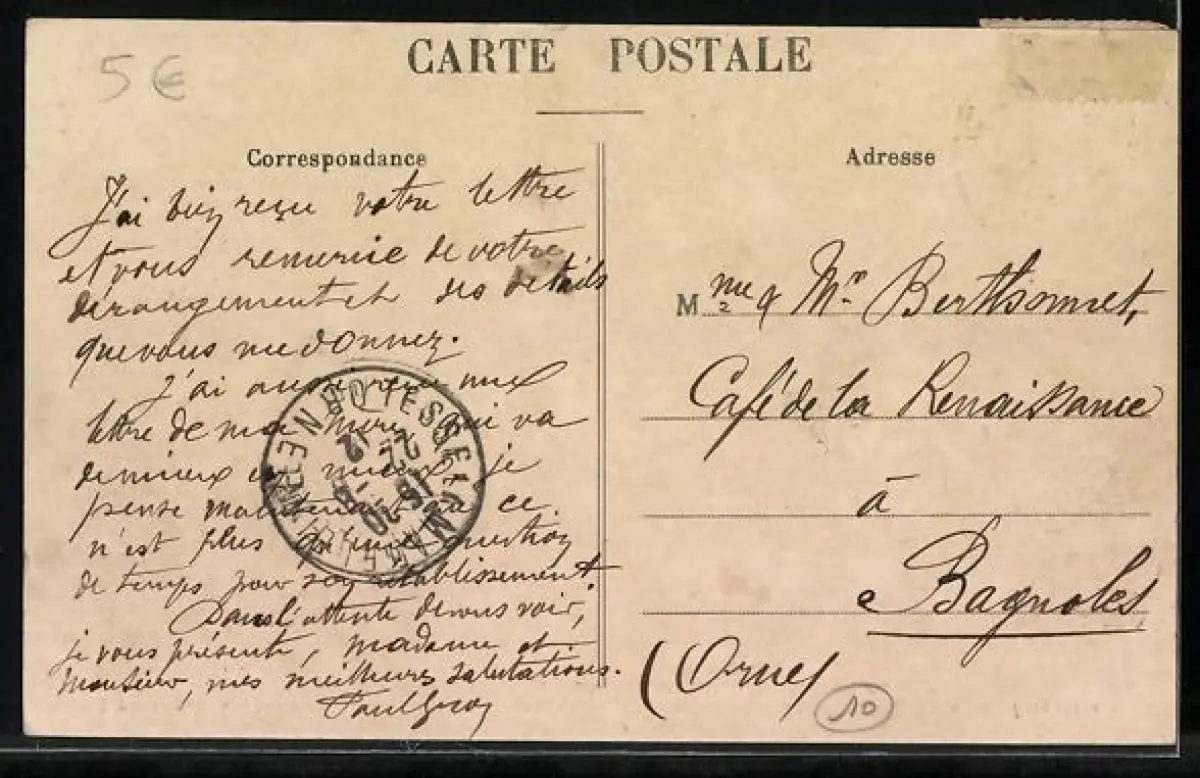 CARTE POSTALE
5 €
Correspondance
J'ai bien reçu votre lettre
et vous remercie de votre
dérangement et des détails
que vous me donnez.
J'ai aussi reçu une
lettre de ma mère, qui va
de mieux en mieux, je
pense maintenant que ce
n'est plus qu'une question
de temps pour son rétablissement.
Dans l'attente de vous voir,
je vous présente, madame et
Monsieur, mes meilleures salutations.
Paul
Adresse
Mme & Mr. Berthomet,
Café de la Renaissance
à
Bagnoles
(Orne)
10